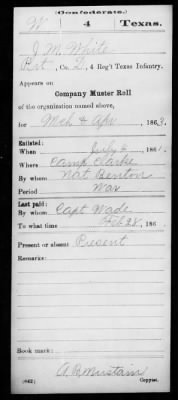 (Confederate.)
W 4 Texas.
J M White
Pvt, Co. D, 4 Reg't Texas Infantry.
Appears on
Company Muster Roll
of the organization named above,
for Mch & Apr, 1863.
Enlisted:
When July 6, 1861.
Where Camp Clarke
By whom Nat Benton
Period War
Last paid:
By whom Capt Wade
To what time Feb 28, 186
Present or absent Present
Remarks:
Book mark:
A. B. Mustain
(642) Copyist.